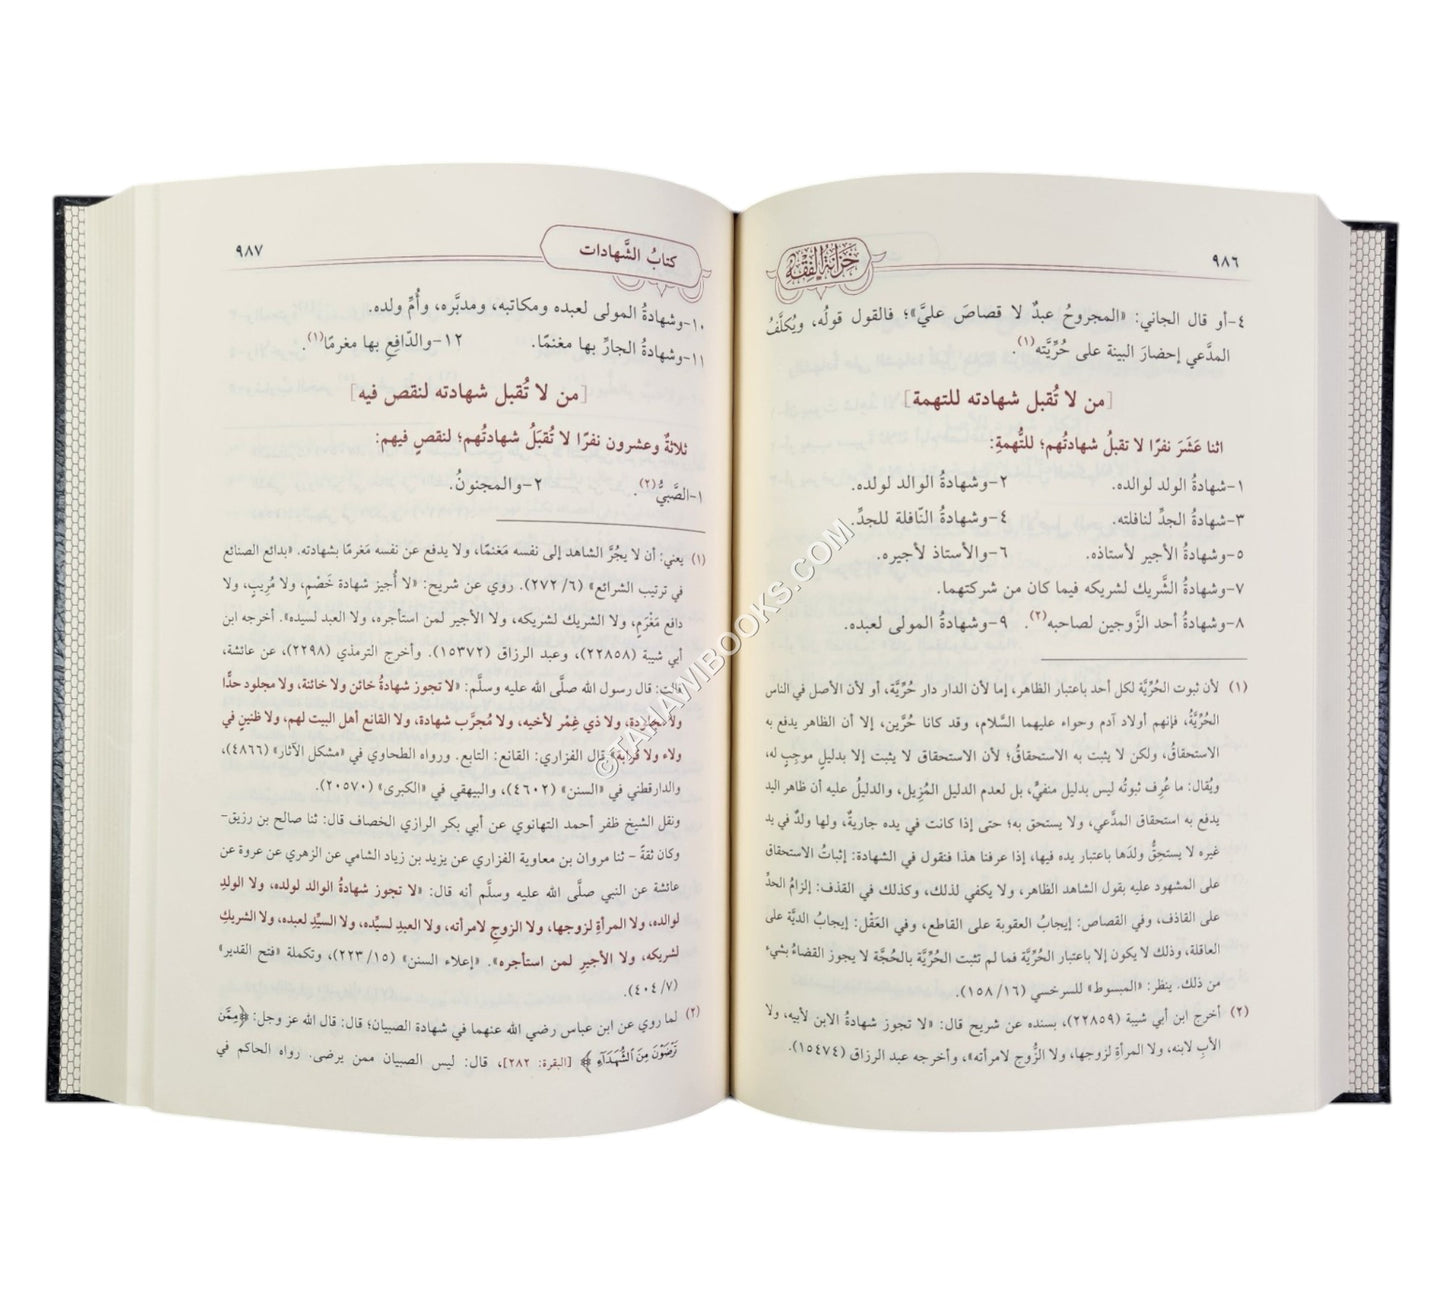 ٩٨٦
خزانة الفقه
٤-أو قال الجاني: «المجروحُ عبدٌ لا قصاصَ عليَّ»؛ فالقول قولُه، ويُكلَّفُ
المدَّعي إحضارَ البينة على حُرِّيَّته(١).
[من لا تُقبل شهادته للتهمة]
اثنا عَشَرَ نفرًا لا تقبلُ شهادتُهم؛ للتُّهمةِ:
١-شهادةُ الولد لوالده. ٢-وشهادةُ الوالد لولده.
٣-شهادةُ الجدِّ لنافلته. ٤-وشهادةُ النّافلة للجدِّ.
٥-وشهادةُ الأجير لأستاذه. ٦-والأستاذ لأجيره.
٧-وشهادةُ الشَّريك لشريكه فيما كان من شركتهما.
٨-وشهادةُ أحد الزَّوجين لصاحبه(٢). ٩-وشهادةُ المولى لعبده.
(١) لأن ثبوت الحُرِّيَّة لكل أحد باعتبار الظاهر، إما لأن الدار دار حُرِّيَّة، أو لأن الأصل في الناس
الحُرِّيَّةُ، فإنهم أولاد آدم وحواء عليهما السَّلام، وقد كانا حُرَّين، إلا أن الظاهر يدفع به
الاستحقاقُ، ولكن لا يثبت به الاستحقاقُ؛ لأن الاستحقاق لا يثبت إلا بدليلٍ موجِبٍ له،
ويُقال: ما عُرِف ثبوتُه ليس بدليل منفيٌّ، بل لعدم الدليل المُزِيل، والدليلُ عليه أن ظاهر اليد
يدفع به استحقاق المدَّعي، ولا يستحق به؛ حتى إذا كانت في يده جاريةٌ، ولها ولدٌ في يد
غيره لا يستحِقُّ ولدَها باعتبار يده فيها، إذا عرفنا هذا فنقول في الشهادة: إثباتُ الاستحقاق
على المشهود عليه بقول الشاهد الظاهر، ولا يكفي لذلك، وكذلك في القذف: إلزامُ الحدِّ
على القاذف، وفي القصاص: إيجابُ العقوبة على القاطع، وفي العَقْل: إيجابُ الديَّة على
العاقلة، وذلك لا يكون إلا باعتبار الحُرِّيَّة فما لم تثبت الحُرِّيَّة بالحُجَّة لا يجوز القضاءُ بشيء
من ذلك. ينظر: «المبسوط» للسرخسي (١٦/ ١٥٨).
(٢) أخرج ابن أبي شيبة (٢٢٨٥٩)، بسنده عن شريح قال: «لا تجوز شهادةُ الابن لأبيه، ولا
الأبِ لابنه، ولا المرأةِ لزوجها، ولا الزُّوج لامرأته»، وأخرجه عبد الرزاق (١٥٤٧٤).
كتابُ الشَّهادات
٩٨٧
١٠-وشهادةُ المولى لعبده ومكاتبه، ومدبَّره، وأُمِّ ولده.
١١-وشهادةُ الجارِّ بها مغنمًا. ١٢-والدّافعِ بها مغرمًا(١).
[من لا تُقبل شهادته لنقص فيه]
ثلاثةٌ وعشرون نفرًا لا تُقبَلُ شهادتُهم؛ لنقصٍ فيهم:
١-الصَّبيُّ(٢). ٢-والمجنونُ.
(١) يعني: أن لا يجُرَّ الشاهد إلى نفسه مَغنمًا، ولا يدفع عن نفسه مَغرمًا بشهادته. «بدائع الصنائع
في ترتيب الشرائع» (٦/ ٢٧٢). روي عن شريح: «لا أُجيز شهادة خَصْمٍ، ولا مُرِيب، ولا
دافع مَغْرَمٍ، ولا الشريك لشريكه، ولا الأجير لمن استأجره، ولا العبد لسيده». أخرجه ابن
أبي شيبة (٢٢٨٥٨)، وعبد الرزاق (١٥٣٧٢). وأخرج الترمذي (٢٢٩٨)، عن عائشة،
قالت: قال رسول الله صلَّى الله عليه وسلَّم: «لا تجوز شهادةُ خائن ولا خائنة، ولا مجلود حدًّا
ولا مجلودة، ولا ذي غِمْر لأخيه، ولا مُجرَّب شهادة، ولا القانع أهل البيت لهم، ولا ظنين في
ولاء ولا قرابة» قال الفزاري: القانع: التابع. ورواه الطحاوي في «مشكل الآثار» (٤٨٦٦)،
والدارقطني في «السنن» (٤٦٠٢)، والبيهقي في «الكبرى» (٢٠٥٧٠).
ونقل الشيخ ظفر أحمد التهانوي عن أبي بكر الرازي الخصاف قال: ثنا صالح بن رزيق-
وكان ثقةً - ثنا مروان بن معاوية الفزاري عن يزيد بن زياد الشامي عن الزهري عن عروة عن
عائشة عن النبي صلَّى الله عليه وسلَّم أنه قال: «لا تجوز شهادةُ الوالد لولده، ولا الولدِ
لوالده، ولا المرأةِ لزوجها، ولا الزوجِ لامرأته، ولا العبدِ لسيِّده، ولا السيِّدِ لعبده، ولا الشريكِ
لشريكه، ولا الأجيرِ لمن استأجره». «إعلاء السنن» (١٥/ ٢٢٣)، وتكملة «فتح القدير»
(٧/ ٤٠٤).
(٢) لما روي عن ابن عباس رضي الله عنهما في شهادة الصبيان؛ قال: قال الله عز وجل: ﴿مِمَّن
تَرْضَوْنَ مِنَ ٱلشُّهَدَآءِ﴾ [البقرة: ٢٨٢]، قال: ليس الصبيان ممن يرضى. رواه الحاكم في
©TAHAMIBOOKS.COM